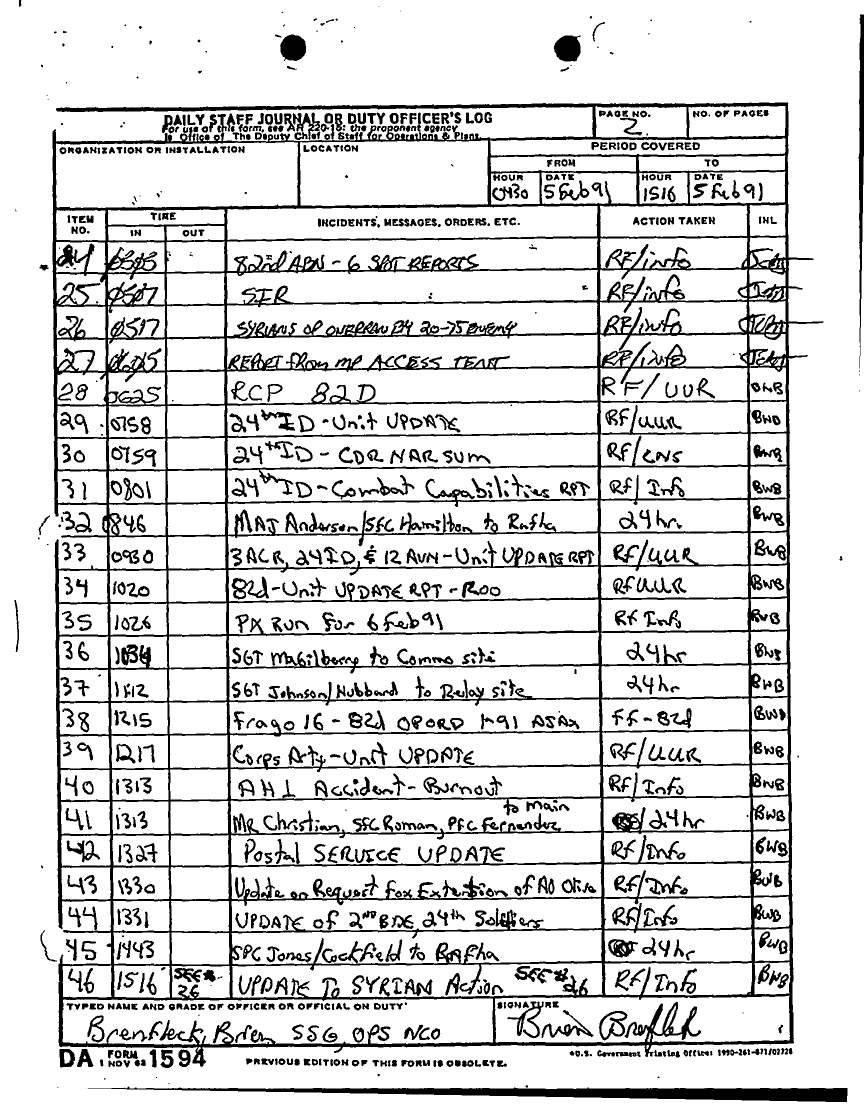 DAILY STAFF JOURNAL OR DUTY OFFICER'S LOG
For use of this form, see AR 220-15; the proponent agency
is Office of The Deputy Chief of Staff for Operations & Plans.
PAGE NO.
2
NO. OF PAGES
ORGANIZATION OR INSTALLATION
LOCATION
PERIOD COVERED
FROM
TO
HOUR DATE HOUR DATE
0430 5 Feb 91 1516 5 Feb 91
ITEM NO. TIME IN OUT INCIDENTS, MESSAGES, ORDERS, ETC. ACTION TAKEN INL
24 82nd ABN - 6 SPOT REPORTS RF/info
25 0507 SIR RF/info
26 0517 SYRIANS OP OVERRAN BY 20-75 ENEMY RF/info
27 REPORT from MP ACCESS TENT RF/info
28 0625 RCP 82D RF/UUR BWB
29 0758 24th ID - Unit UPDATE RF/UUR BWB
30 0759 24th ID - CDR NAR SUM RF/ BWB
31 0801 24th ID - Combat Capabilities RPT Rf/Info BWB
32 0846 MAJ Anderson/SFC Hamilton to Rafha 24hr. BWB
33 0930 3ACR, 24ID, & 12 AVN - Unit UPDATE RPT Rf/UUR BWB
34 1020 82d - Unit UPDATE RPT - R00 Rf UUR BWB
35 1026 PX Run for 6 Feb 91 Rf Info BWB
36 1034 SGT to Commo site 24hr BWB
37 SGT Johnson/Hubbard to Relay site 24hr BWB
38 1215 Frago 16 - 82d OPORD 1-91 FF-82d BWB
39 1217 Corps Arty - Unit UPDATE Rf/UUR BWB
40 1313 AH1 Accident - Burnout Rf/Info BWB
41 1313 Mr Christian, SFC Roman, PFC Fernandez to main / 24hr BWB
42 1327 Postal SERVICE UPDATE Rf/Info BWB
43 1330 Update on Request Fox Extention of AO Olive Rf/Info BWB
44 1331 UPDATE of 2ND BDE, 24th Soldiers Rf/Info BWB
45 1443 SPC Jones/Cockfield to RAfha 24hr BWB
46 1516 SEE # 26 UPDATE TO SYRIAN Action SEE # 26 Rf/Info BWB
TYPED NAME AND GRADE OF OFFICER OR OFFICIAL ON DUTY
SIGNATURE
Brenfleck, Brien SSG, OPS NCO
DA FORM 1 NOV 62 1594
PREVIOUS EDITION OF THIS FORM IS OBSOLETE.
U.S. Government Printing Office: 1990-261-871/02728